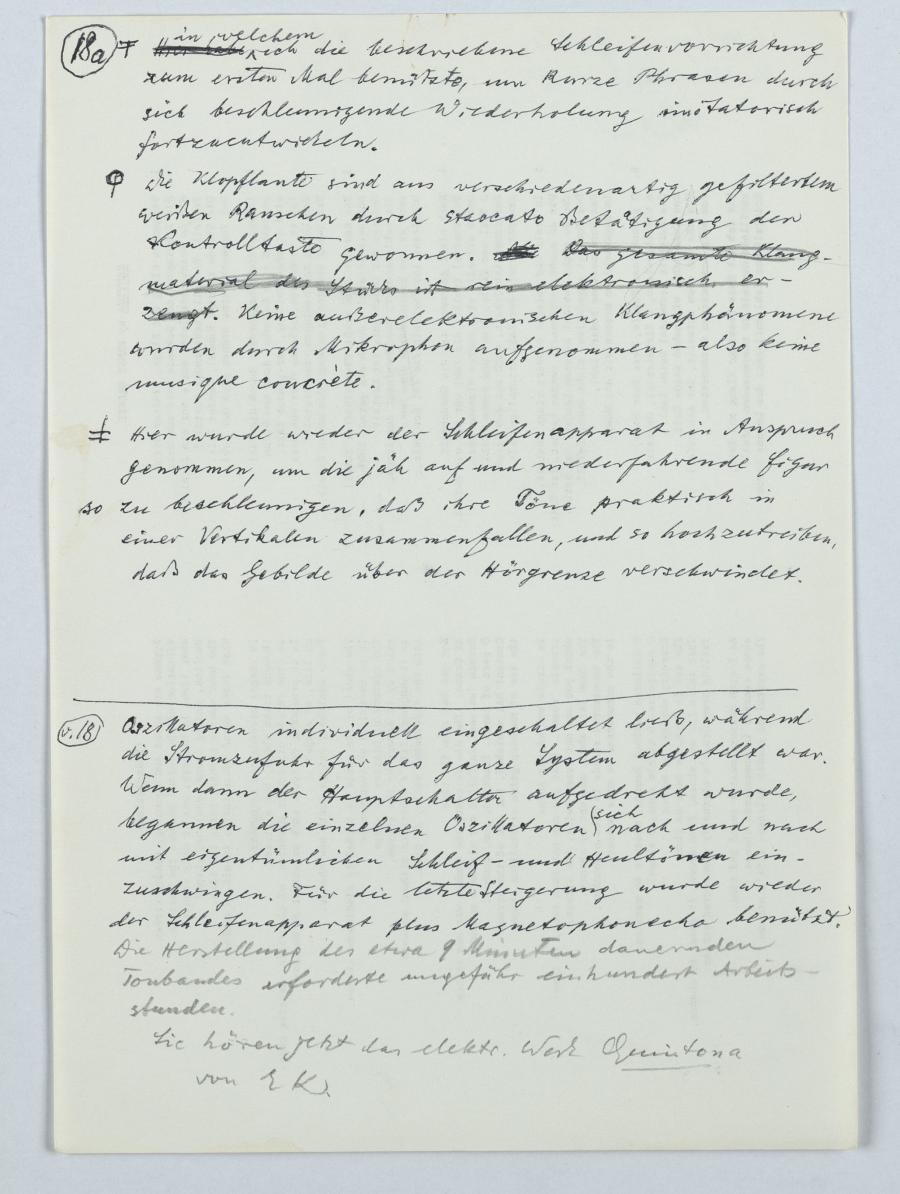 18a
in welchem
Ŧ Hier habe ich die beschriebene Schleifenvorrichtung
zum ersten Mal benützte, um kurze Phrasen durch
sich beschleunigende Wiederholung imitatorisch
fortzuentwickeln.
Die Klopflaute sind aus verschiedenartig gefiltertem
weißen Rauschen durch staccato Betätigung der
Kontrolltaste gewonnen. Das gesamte Klang-
material des Stücks ist rein elektronisch er-
zeugt. Keine außerelektronischen Klangphänomene
wurden durch Mikrophon aufgenommen – also keine
musique concrète.
Hier wurde wieder der Schleifenapparat in Anspruch
genommen, um die jäh auf und niederfahrende Figur
so zu beschleunigen, daß ihre Töne praktisch in
einer Vertikalen zusammenfallen, und so hochzutreiben,
daß das Gebilde über der Hörgrenze verschwindet.
v. 18
Oszillatoren individuell eingeschaltet ließ, während
die Stromzufuhr für das ganze System abgestellt war.
Wenn dann der Hauptschalter aufgedreht wurde,
sich
begannen die einzelnen Oszillatoren nach und nach
mit eigentümlichen Schleif- und Heultönen ein-
zuschwingen. Für die letzte Steigerung wurde wieder
der Schleifenapparat plus Magnetophonecho benützt.
Die Herstellung des etwa 9 Minuten dauernden
Tonbandes erforderte ungefähr einhundert Arbeits-
stunden.
Sie hören jetzt das elektr. Werk Quintona
von E K.